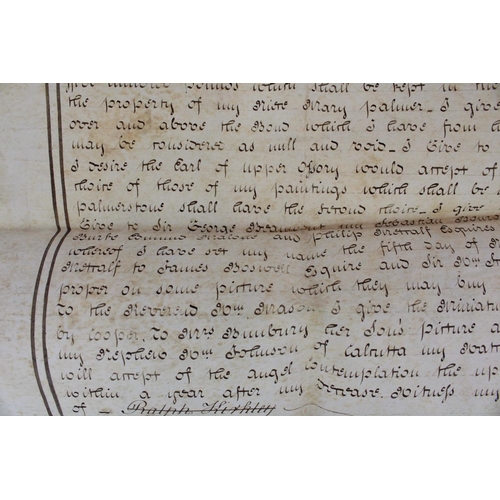 five hundred pounds which shall be kept in the
the property of my Niece Mary palmer_ I give
over and above the Bond which I have from h
may be considered as null and void_ I Give to
I desire the Earl of upper Ossory would accept of
choice of those of my paintings which shall be
palmerstone shall have the second choice_ I give
Give to Sir George Beaumont my Sebastian Bour
Burke Edmund Malone and philip Metcalf Esquires
whereof I have set my name the fifth Day of N
Metcalf to James Boswell Esquire and Sir Wm S
proper on some picture which they may buy
To the Reverend Wm Mason I give the Miniatu
by Cooper. To Mrs Bunbury her Son's picture a
my Nephew Wm Johnson of Calcutta my Wat
will accept of the angel Contemplation the up
within a year after my Decease. Witness my
of _ Ralph Kirkley